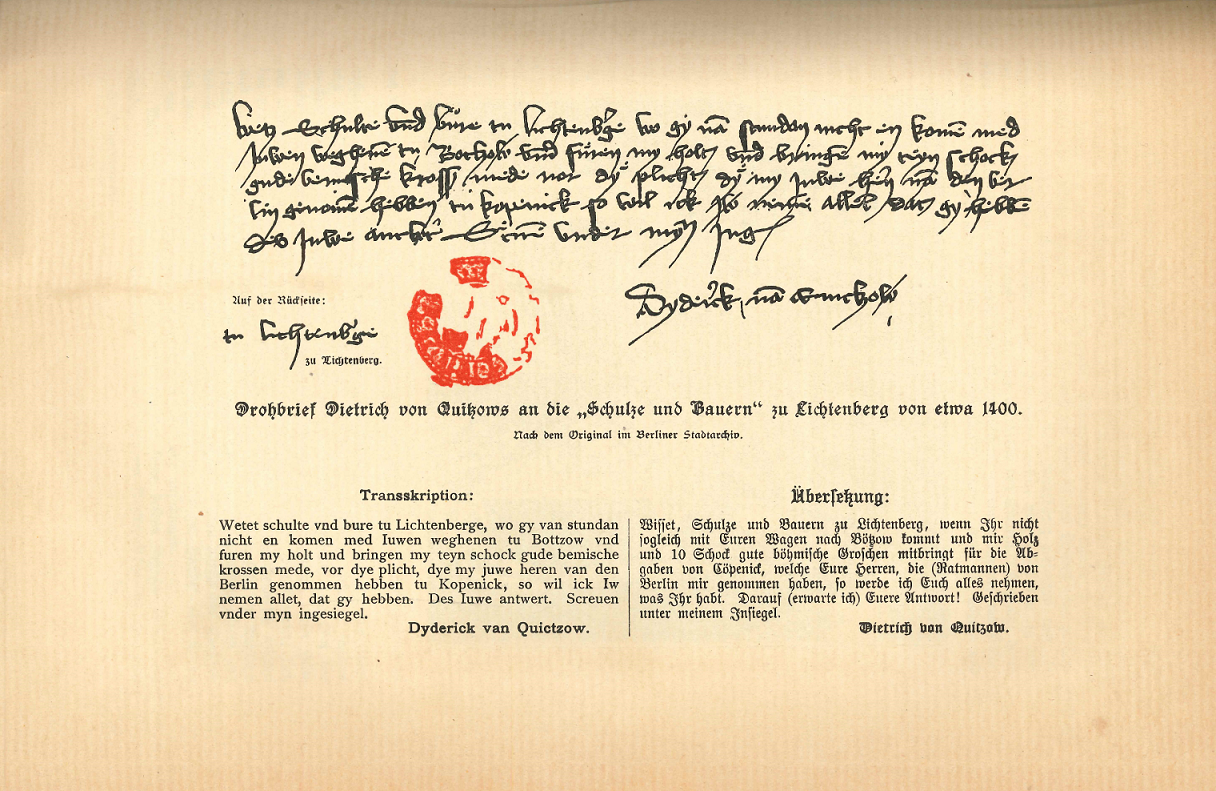 Wetet Schulte vnd bure tu lichtenberge wo gy van stundan nicht en komen med
Juwen weghenen tu Botzow vnd furen my holt vnd bringen my teyn schock
gude bemische krossen mede vor dye plicht dye my Juwe heren van den ber
lin genomen hebben tu kopenick so wil ick Iw nemen allet dat gy hebben
des Juwe antwert Screuen vnder myn Ing
Dyderick van Quictzow
Auf der Rückseite:
tu lichtenberge
zu Lichtenberg.
Drohbrief Dietrich von Quitzows an die „Schulze und Bauern“ zu Lichtenberg von etwa 1400.
Nach dem Original im Berliner Stadtarchiv.
Transskription:
Wetet schulte vnd bure tu Lichtenberge, wo gy van stundan
nicht en komen med Iuwen weghenen tu Bottzow vnd
furen my holt und bringen my teyn schock gude bemische
krossen mede, vor dye plicht, dye my juwe heren van den
Berlin genommen hebben tu Kopenick, so wil ick Iw
nemen allet, dat gy hebben. Des Iuwe antwert. Screuen
vnder myn ingesiegel.
Dyderick van Quictzow.
Übersetzung:
Wisset, Schulze und Bauern zu Lichtenberg, wenn Ihr nicht
sogleich mit Euren Wagen nach Bötzow kommt und mir Holz
und 10 Schock gute böhmische Groschen mitbringt für die Ab-
gaben von Cöpenick, welche Eure Herren, die (Ratmannen) von
Berlin mir genommen haben, so werde ich Euch alles nehmen,
was Ihr habt. Darauf (erwarte ich) Euere Antwort! Geschrieben
unter meinem Insiegel.
Dietrich von Quitzow.